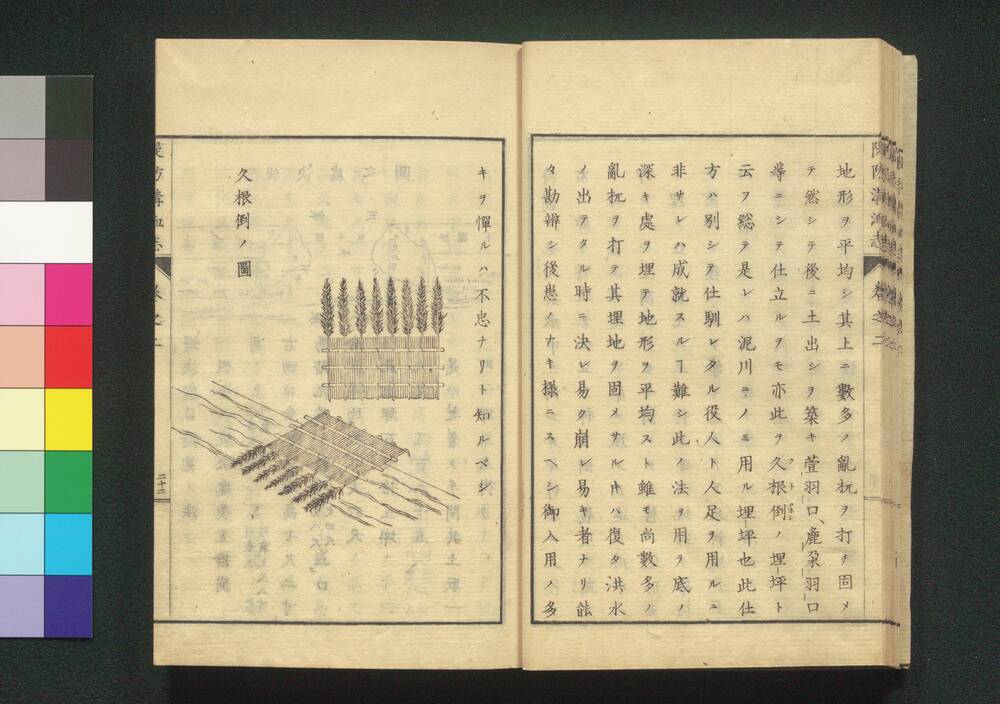 地形ヲ平均シ其上ニ數多ノ亂杭ヲ打チ固メ
テ然シテ後ニ土出シヲ築キ萱羽口、麁朶羽口
等ニシテ仕立ルヲモ亦此ヲ久根倒ノ埋坪ト
云フ総テ是レハ泥川ニノミ用ル埋坪也此仕
方ハ別シテ仕馴レタル役人ト人足ヲ用ルニ
非サレハ成就スルヿ難シ此ノ法ヲ用テ底ノ
深キ處ヲ埋テ地形ヲ平均スト雖モ尚數多ノ
亂杭ヲ打テ其埋地ヲ固メサルキハ復タ洪水
ノ出テタル時ニ決レ易ク崩レ易キ者ナリ能
々勘辨シ後患ノナキ様ニスヘシ御入用ノ多
キヲ憚ルハ不忠ナリト知ルベシ
久根倒ノ圖
堤防溝洫志
卷之二
二十二